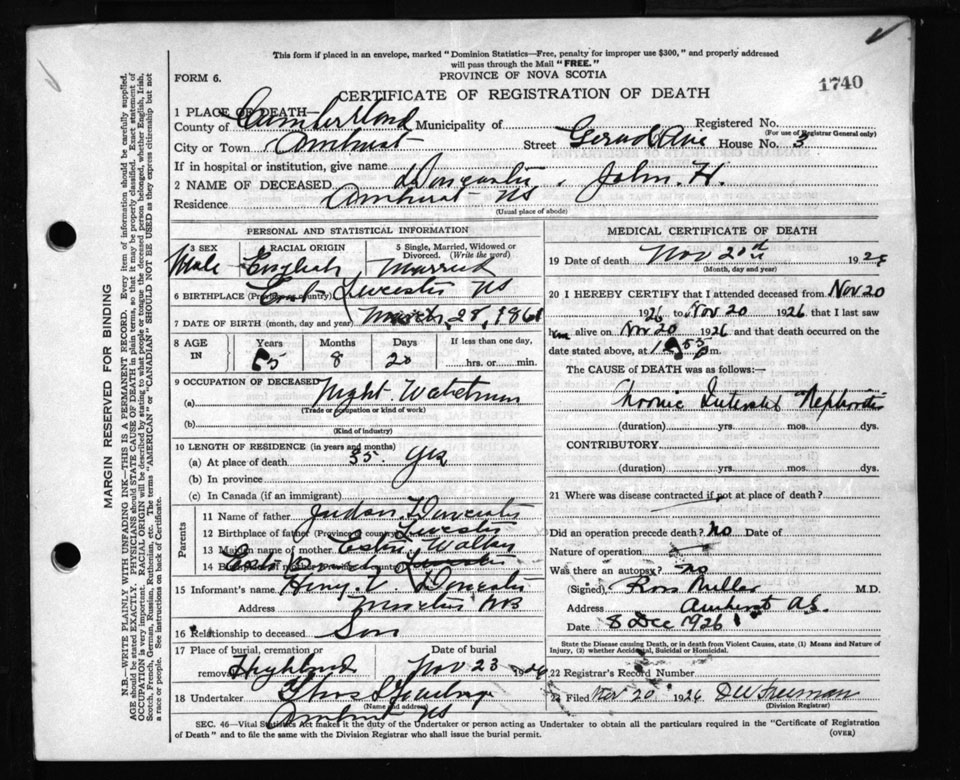 This form if placed in an envelope, marked "Dominion Statistics—Free, penalty for improper use $300," and properly addressed
will pass through the Mail "FREE."
FORM 6.
PROVINCE OF NOVA SCOTIA
1740
CERTIFICATE OF REGISTRATION OF DEATH
1 PLACE OF DEATH
County of Cumberland Municipality of Registered No.
(For use of Registrar General only)
City or Town Amherst Street House No. 3
If in hospital or institution, give name
2 NAME OF DECEASED John. H.
Residence Amherst NS
(Usual place of abode)
PERSONAL AND STATISTICAL INFORMATION
3 SEX RACIAL ORIGIN 5 Single, Married, Widowed or
Divorced. (Write the word)
Male English Married
6 BIRTHPLACE (Province or country) Leicester NS
7 DATE OF BIRTH (month, day and year) March 28, 1861
8 AGE IN Years Months Days If less than one day,
65 8 20 hrs. or min.
9 OCCUPATION OF DECEASED
(a) Night Watchman
(Trade or occupation or kind of work)
(b)
(Kind of industry)
10 LENGTH OF RESIDENCE (in years and months)
(a) At place of death 35. yrs
(b) In province
(c) In Canada (if an immigrant)
Parents
11 Name of father
12 Birthplace of father (Province or country) Leicester
13 Maiden name of mother
14 Birthplace of mother (Province or country) Leicester
15 Informant's name Henry
Address NB
16 Relationship to deceased Son
17 Place of burial, cremation or Date of burial
removal Highland Nov 23 1926
18 Undertaker Thos
(Name and address)
Amherst NS
MEDICAL CERTIFICATE OF DEATH
19 Date of death Nov 20th 192
(Month, day and year)
20 I HEREBY CERTIFY that I attended deceased from Nov 20
1926 to Nov 20 1926 that I last saw
him alive on Nov 20 1926 and that death occurred on the
date stated above, at m.
The CAUSE OF DEATH was as follows:—
Chronic Interstit Nephritis
(duration) yrs. mos. dys.
CONTRIBUTORY
(duration) yrs. mos. dys.
21 Where was disease contracted if not at place of death?
Did an operation precede death? No Date of
Nature of operation
Was there an autopsy? no
(Signed) Ross Millar M.D.
Address Amherst
Date 8 Dec 1926
State the Disease Causing Death, or in death from Violent Causes, state (1) Means and Nature of
Injury, (2) whether Accidental, Suicidal or Homicidal.
22 Registrar's Record Number
23 Filed Nov 20 1926 D W Freeman
(Division Registrar)
SEC. 46—Vital Statistics Act makes it the duty of the Undertaker or person acting as Undertaker to obtain all the particulars required in the "Certificate of Registration
of Death" and to file the same with the Division Registrar who shall issue the burial permit.
(OVER)
MARGIN RESERVED FOR BINDING
N.B.—WRITE PLAINLY WITH UNFADING INK—THIS IS A PERMANENT RECORD. Every item of information should be carefully supplied.
AGE should be stated EXACTLY. PHYSICIANS should STATE CAUSE OF DEATH in plain terms, so that it may be properly classified. Exact statement of
OCCUPATION is very important. RACIAL ORIGIN will be described by stating to what people or tongue the deceased person belonged, whether English, Irish,
Scotch, French, German, Russian, Ruthenian, etc. The terms "AMERICAN" or "CANADIAN" SHOULD NOT BE USED as they express citizenship but not
a race or people. See instructions on back of Certificate.